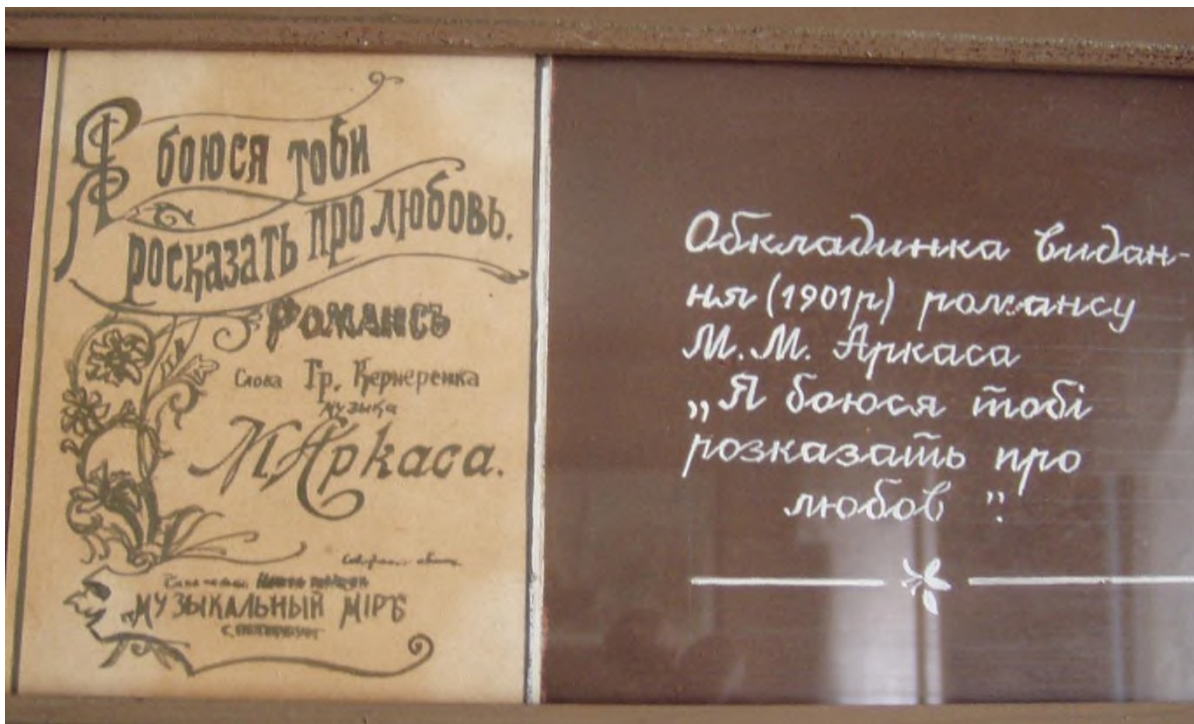 Я боюся тоби
росказать про любовь.
Романсъ
Слова Гр. Кернеренка
музыка
М. Аркаса.
МУЗЫКАЛЬНЫЙ МІРЪ
Обкладинка видан-
ня (1901р) романсу
М. М. Аркаса
„Я боюся тобі
розказать про
любов".